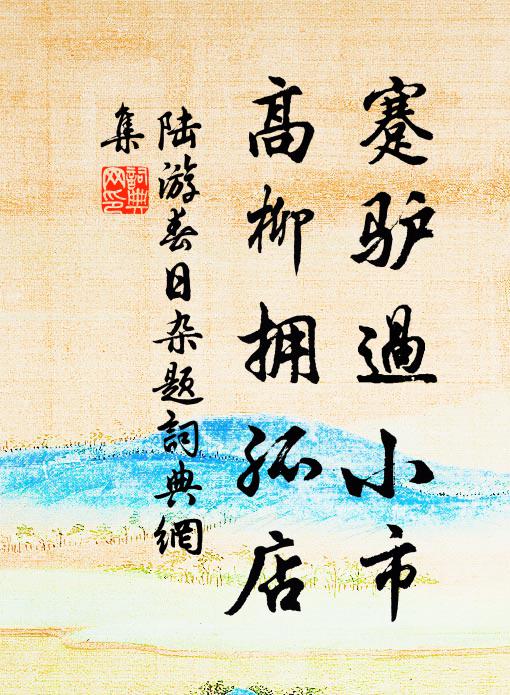 蹇驴過小市
高柳拥孤店
陆游春日杂题詞典網
集
詞典网印